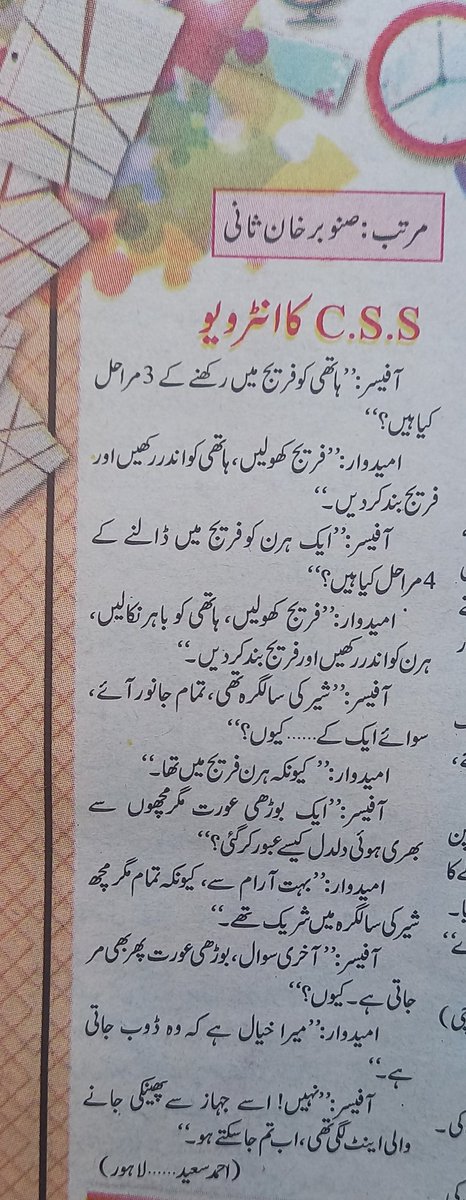 مرتب: صنوبر خان ثانی
C.S.S کا انٹرویو
آفیسر: ’’ہاتھی کو فریج میں رکھنے کے 3 مراحل
کیا ہیں؟‘‘
امیدوار: ’’فریج کھولیں، ہاتھی کو اندر رکھیں اور
فریج بند کر دیں۔‘‘
آفیسر: ’’ایک ہرن کو فریج میں ڈالنے کے
4 مراحل کیا ہیں؟‘‘
امیدوار: ’’فریج کھولیں، ہاتھی کو باہر نکالیں،
ہرن کو اندر رکھیں اور فریج بند کر دیں۔‘‘
آفیسر: ’’شیر کی سالگرہ تھی، تمام جانور آئے،
سوائے ایک کے......کیوں؟‘‘
امیدوار: ’’کیونکہ ہرن فریج میں تھا۔‘‘
آفیسر: ’’ایک بوڑھی عورت مگرمچھوں سے
بھری ہوئی دلدل کیسے عبور کر گئی؟‘‘
امیدوار: ’’بہت آرام سے، کیونکہ تمام مگرمچھ
شیر کی سالگرہ میں شریک تھے۔‘‘
آفیسر: ’’آخری سوال، بوڑھی عورت پھر بھی مر
جاتی ہے۔ کیوں؟‘‘
امیدوار: ’’میرا خیال ہے کہ وہ ڈوب جاتی
ہے۔‘‘
آفیسر: ’’نہیں! اسے جہاز سے پھینکی جانے
والی اینٹ لگی تھی، اب تم جا سکتے ہو۔‘‘
(احمد سعید......لاہور)